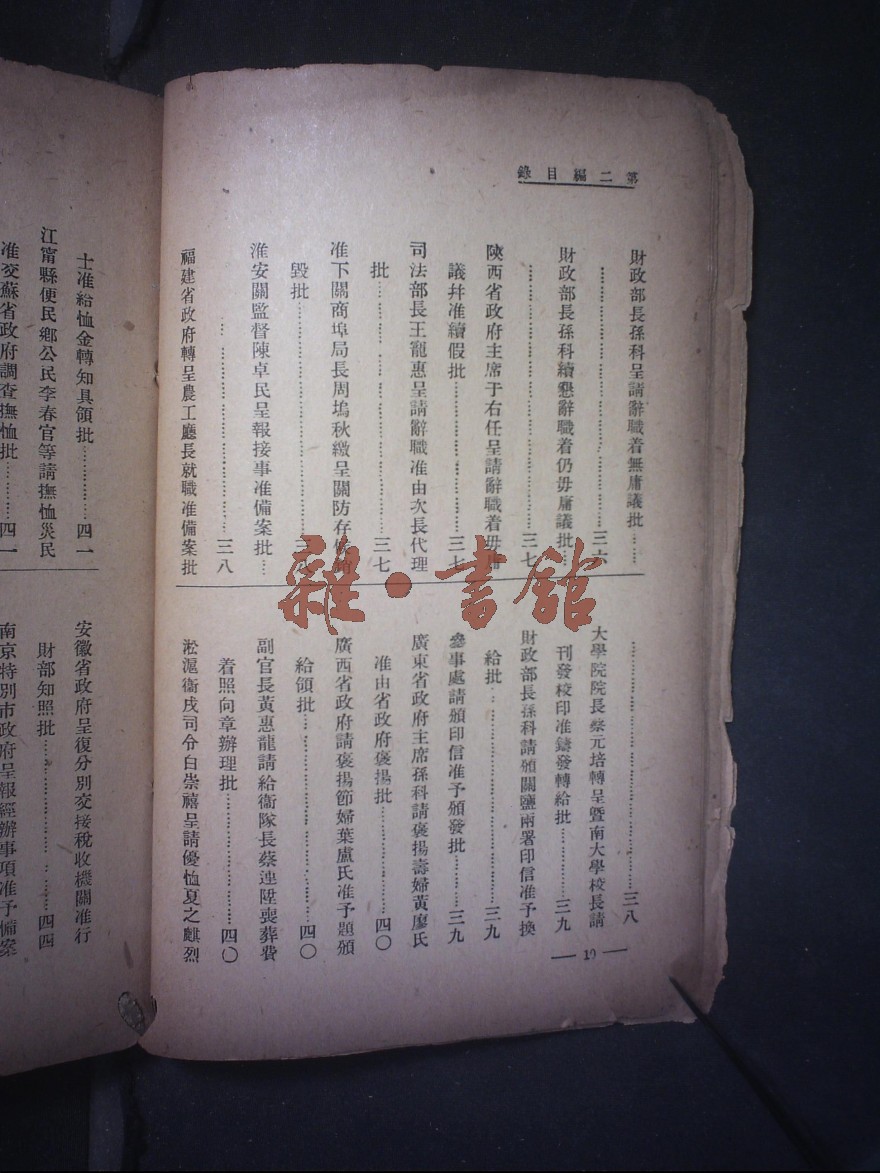 第二編目錄
財政部長孫科呈請辭職着無庸議批……
…………三六
財政部長孫科續懇辭職着仍毋庸議批…
…………三七
陝西省政府主席于右任呈請辭職着毋庸
議幷准續假批…………三七
司法部長王寵惠呈請辭職准由次長代理
批…………三七
准下關商埠局長周塢秋繳呈關防存候銷
毀批…………三八
淮安關監督陳卓民呈報接事准備案批…
…………三八
福建省政府轉呈農工廳長就職准備案批
…………三八
大學院院長蔡元培轉呈暨南大學校長請
刊發校印准鑄發轉給批…………三九
財政部長孫科請頒關鹽兩署印信准予換
給批…………三九
參事處請頒印信准予頒發批…………三九
廣東省政府主席孫科請褒揚壽婦黃廖氏
准由省政府褒揚批…………四〇
廣西省政府請褒揚節婦葉盧氏准予題頒
給領批…………四〇
副官長黃惠龍請給衞隊長蔡連陞喪葬費
着照向章辦理批…………四〇
淞滬衞戍司令白崇禧呈請優恤夏之麒烈
— 19 —
士准給恤金轉知具領批…………四一
江甯縣便民鄉公民李春官等請撫恤災民
准交蘇省政府調查撫恤批…………四一
安徽省政府呈復分別交接稅收機關准行
財部知照批…………四四
南京特別市政府呈報經辦事項准予備案
雜·書館